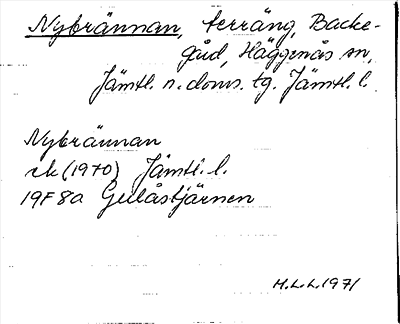 Nybrännan, terräng, Backe-
gård, Häggenås sn,
Jämtl. n. doms. tg. Jämtl. l.
Nybrännan
rk (1970) Jämtl. l.
19F 8a Gulåstjärnen
H.L.L. 1971